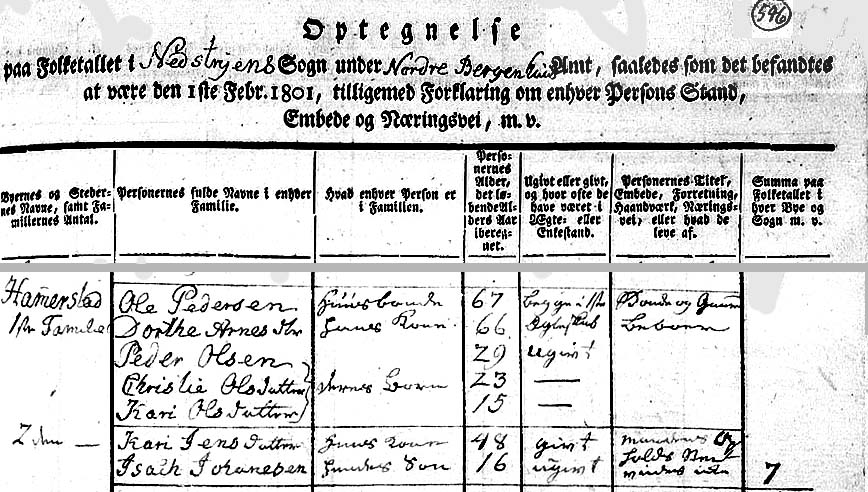 546
Optegnelse
paa Folketallet i Nedstryens Sogn under Nordre Bergenhuus Amt, saaledes som det befandtes
at være den 1ste Febr. 1801, tilligemed Forklaring om enhver Persons Stand,
Embede og Næringsvei, m. v.
Byernes og Steder-
nes Navne, samt Fa-
milliernes Antal.
Personernes fulde Navne i enhver
Familie.
Hvad enhver Person er
i Familien.
Perso-
nernes
Alder,
det lø-
bende Al-
ders Aar
ibereg-
net.
Ugivt eller givt,
og hvor ofte de
have været i
Ægte- eller
Enkestand.
Personernes Titel,
Embede, Forretning,
Haandværk, Nærings-
vei, eller hvad de
leve af.
Summa paa
Folketallet i
hver Bye og
Sogn m. v.
Hamerstad Ole Pedersen Huusbonde 67 Bonde og
1ste Familie Dorthe Arnes dtr hans Kone 66
Peder Olsen 29 ugivt
Christie Olsdatter deres Børn 23 —
Kari Olsdatter 15 —
2den — Kari Jensdatter huus kone 48 givt
Isach Johanesen hendes Søn 16 ugivt 7